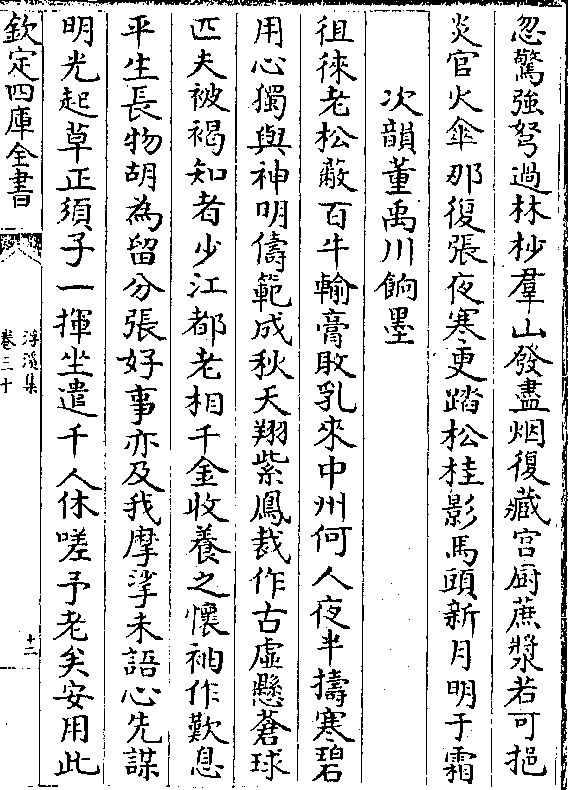 忽驚強弩過林杪羣山發盡烟復藏宫厨蔗漿若可挹
炎官火傘那復張夜寒更踏松桂影馬頭新月明于霜
次韻董禹川餉墨
徂徠老松蔽百牛輸膏敗乳來中州何人夜半擣寒碧
用心獨與神明儔範成秋天翔紫鳳裁作古虛懸蒼球
匹夫被褐知者少江都老相千金收養之懷袖作歎息
平生長物胡為留分張好事亦及我摩挲未語心先謀
明光起草正須子一揮坐遣千人休嗟予老矣安用此
欽定四庫全書
浮溪集
卷三十
十二